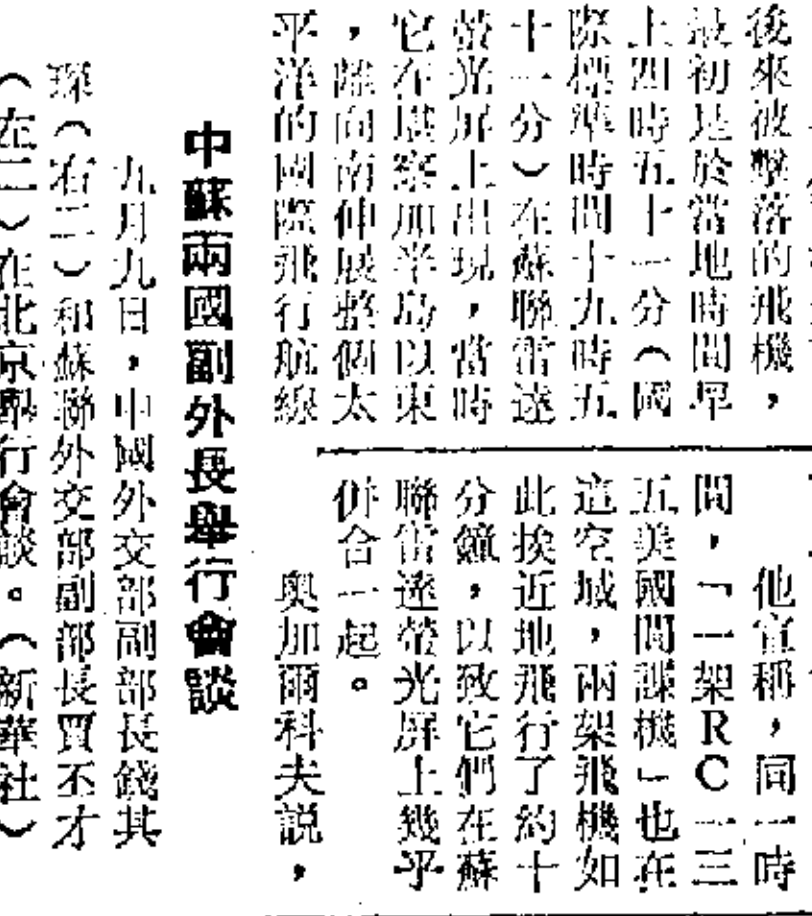 後來被擊落的飛機，
最初是於當地時間早
上四時五十一分（國
際標準時間十九時五
十一分）在蘇聯雷達
螢光屏上出現，當時
它在堪察加半島以東
，離向南伸展整個太
平洋的國際飛行航線
他宣稱，同一時
間，「一架RC一三
五美國間諜機」也在
這空域，兩架飛機如
此挨近地飛行了約十
分鐘，以致它們在蘇
聯雷達螢光屏上幾乎
併合一起。
奧加爾科夫説，
中蘇兩國副外長舉行會談
九月九日，中國外交部副部長錢其
琛（右二）和蘇聯外交部副部長賈丕才
（左二）在北京舉行會談。（新華社）